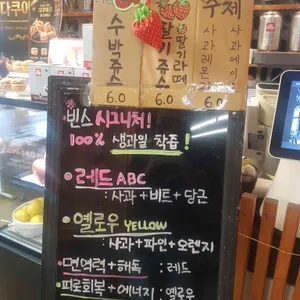 다쿠이
수박쥬스
6.0
딸기쥬스
딸기라떼
6.0
수제
사과레몬
사과에이
6.0
빈스 시그니처!
100% 생과일 착즙!
레드 ABC
: 사과+비트+당근
옐로우 YELLOW
: 사과+파인+오렌지
면역력+해독 : 레드
피로회복+에너지 : 옐로우